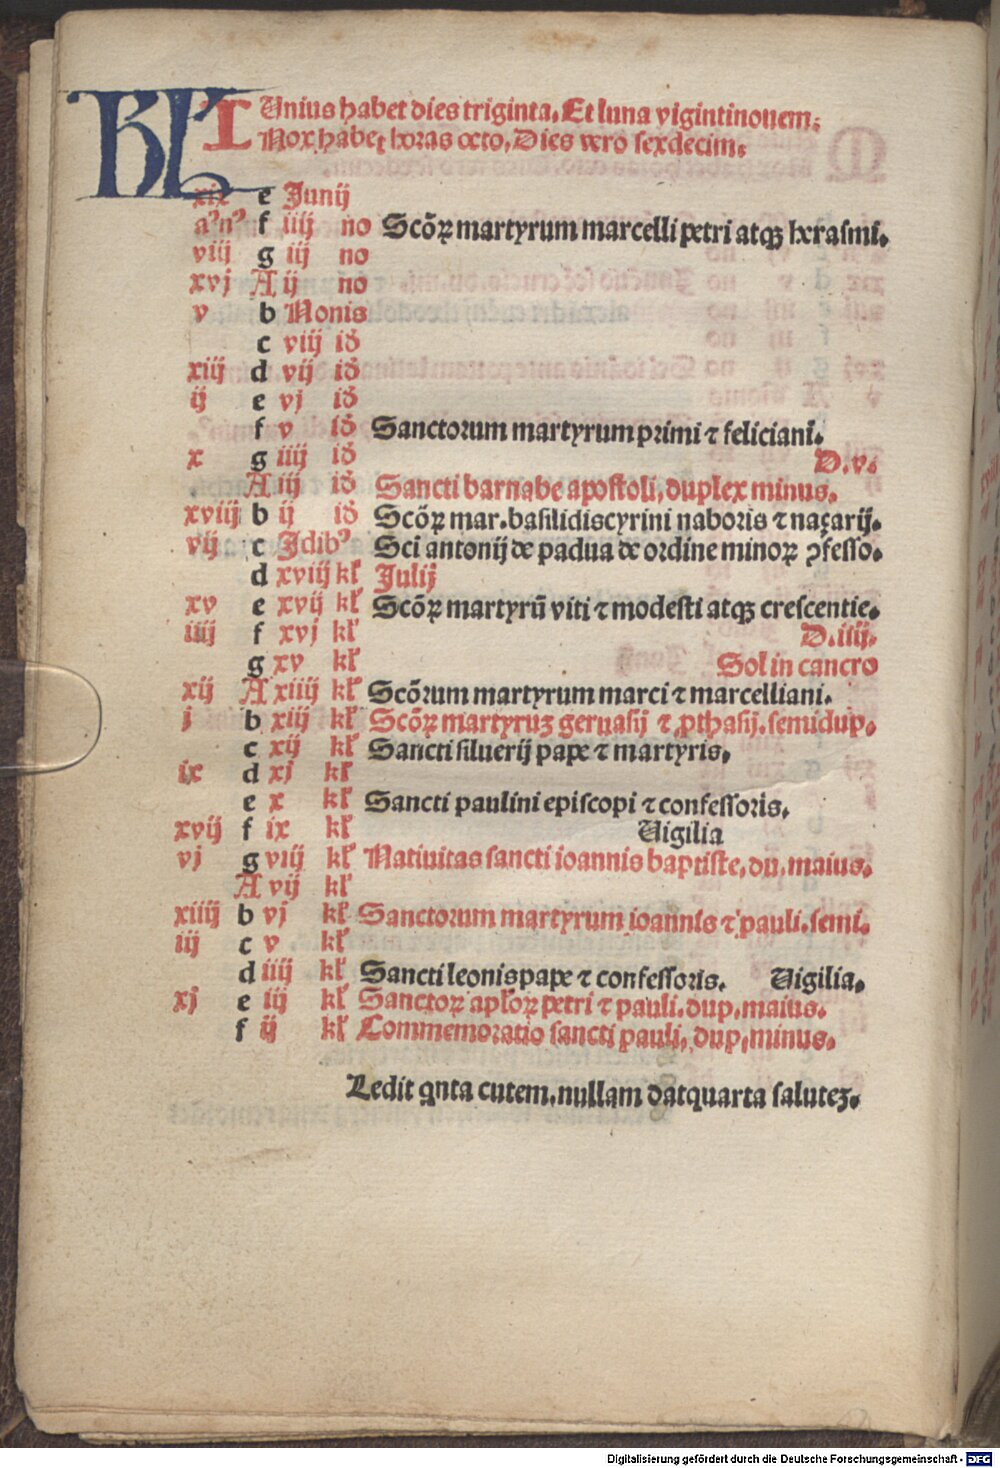 KL IUnius habet dies triginta. Et luna vigintinouem.
Nox habet horas octo, Dies vero sexdecim.
xix e Junij
a⁹n⁹ f iiij no Scõꝝ martyrum marcelli petri atqꝫ herasmi.
viij g iij no
xvj A ij no
v b Nonis
c viij id̛
xiij d vij id̛
ij e vj id̛
f v id̛ Sanctorum martyrum primi ⁊ feliciani.
x g iiij id̛ D.v.
A iij id̛ Sancti barnabe apostoli, duplex minus.
xviij b ij id̛ Scõꝝ mar. basilidis cyrini naboris ⁊ naçarij.
vij c Jdib⁹ Sci antonij de padua de ordine minoꝝ ꝯfesso.
d xviij kl̛ Julij
xv e xvij kl̛ Scõꝝ martyrũ viti ⁊ modesti atqꝫ crescentie.
iiij f xvj kl̛ D.iiij.
g xv kl̛ Sol in cancro
xij A xiiij kl̛ Scõrum martyrum marci ⁊ marcelliani.
j b xiij kl̛ Scõꝝ martyruꝫ geruasij ⁊ ꝓthasij. semidup.
c xij kl̛ Sancti siluerij pape ⁊ martyris.
ix d xj kl̛
e x kl̛ Sancti paulini episcopi ⁊ confessoris.
xvij f ix kl̛ Uigilia
vj g viij kl̛ Natiuitas sancti ioannis baptiste, du. maius.
A vij kl̛
xiiij b vj kl̛ Sanctorum martyrum ioannis ⁊ pauli. semi.
iij c v kl̛
d iiij kl̛ Sancti leonis pape ⁊ confessoris. Uigilia.
xj e iij kl̛ Sanctoꝝ apl̛oꝝ petri ⁊ pauli. dup. maius.
f ij kl̛ Commemoratio sancti pauli, dup. minus.
Ledit qnta cutem. nullam dat quarta saluteꝫ.
Digitalisierung gefördert durch die Deutsche Forschungsgemeinschaft - DFG